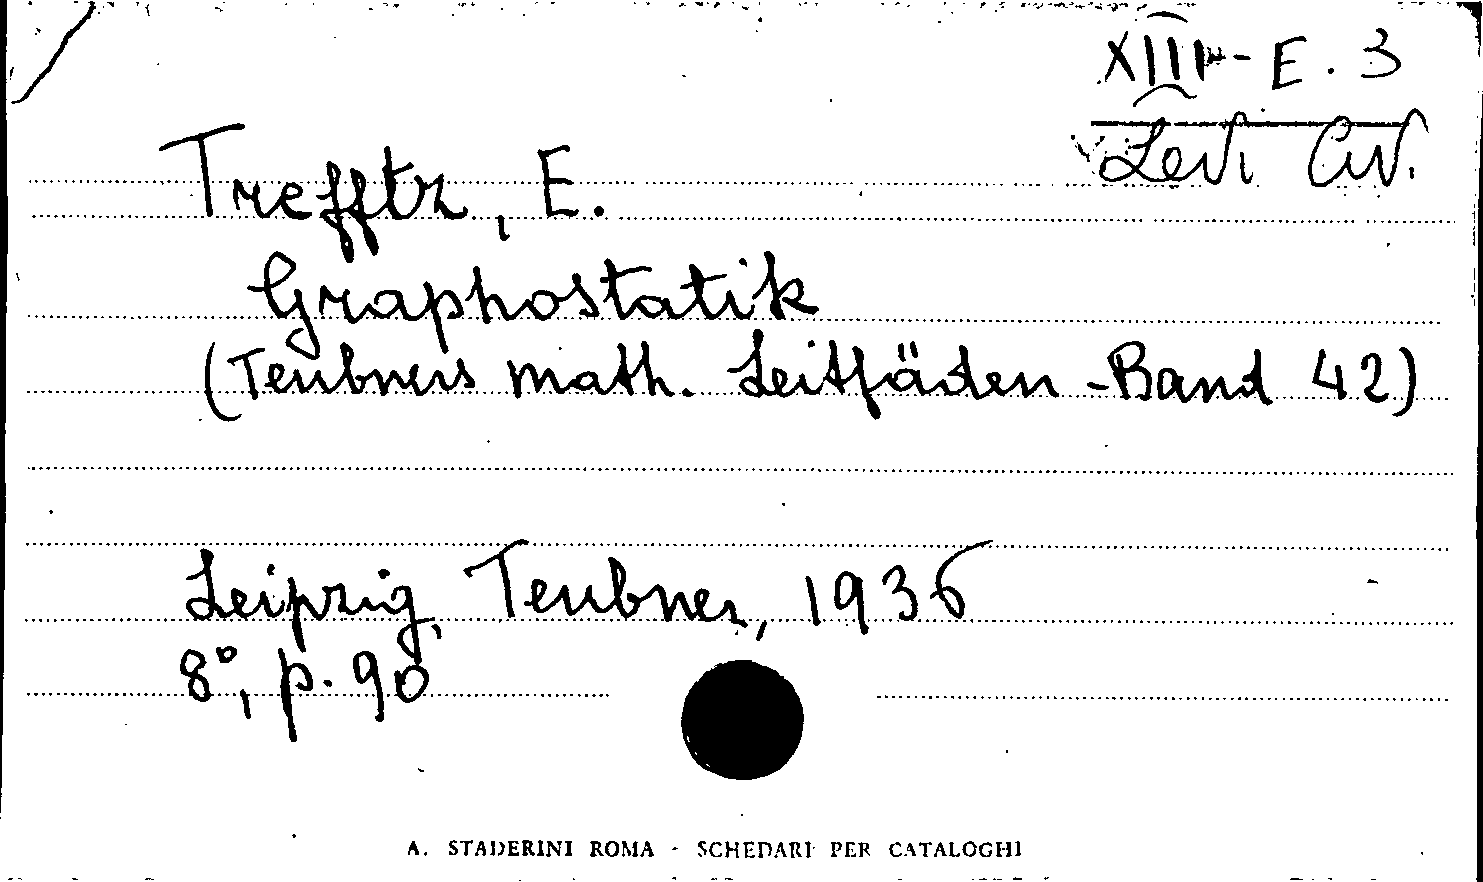 XIII - E. 3
Levi Civ.
Trefftz, E.
Graphostatik
(Teubners math. Leitfäden - Band 42)
Leipzig, Teubner, 1936
8°, p. 90
A. STADERINI ROMA - SCHEDARI PER CATALOGHI